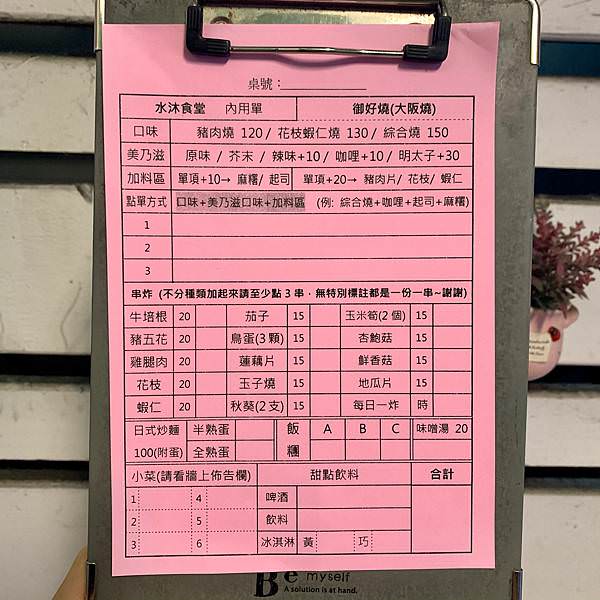 桌號：
水沐食堂 內用單 御好燒(大阪燒)
口味 豬肉燒 120 / 花枝蝦仁燒 130 / 綜合燒 150
美乃滋 原味 / 芥末 / 辣味+10 / 咖哩+10 / 明太子+30
加料區 單項+10→ 麻糬/ 起司 單項+20→ 豬肉片/ 花枝/ 蝦仁
點單方式 口味+美乃滋口味+加料區 (例: 綜合燒+咖哩+起司+麻糬)
1
2
3
串炸 (不分種類加起來請至少點 3 串，無特別標註都是一份一串~謝謝)
牛培根 20 茄子 15 玉米筍(2 個) 15
豬五花 20 鳥蛋(3 顆) 15 杏鮑菇 15
雞腿肉 20 蓮藕片 15 鮮香菇 15
花枝 20 玉子燒 15 地瓜片 15
蝦仁 20 秋葵(2 支) 15 每日一炸 時
日式炒麵 半熟蛋 飯 A B C 味噌湯 20
100(附蛋) 全熟蛋 糰
小菜(請看牆上佈告欄) 甜點飲料 合計
1 4 啤酒
2 5 飲料
3 6 冰淇淋 黃 巧
Be myself
A solution is at hand.